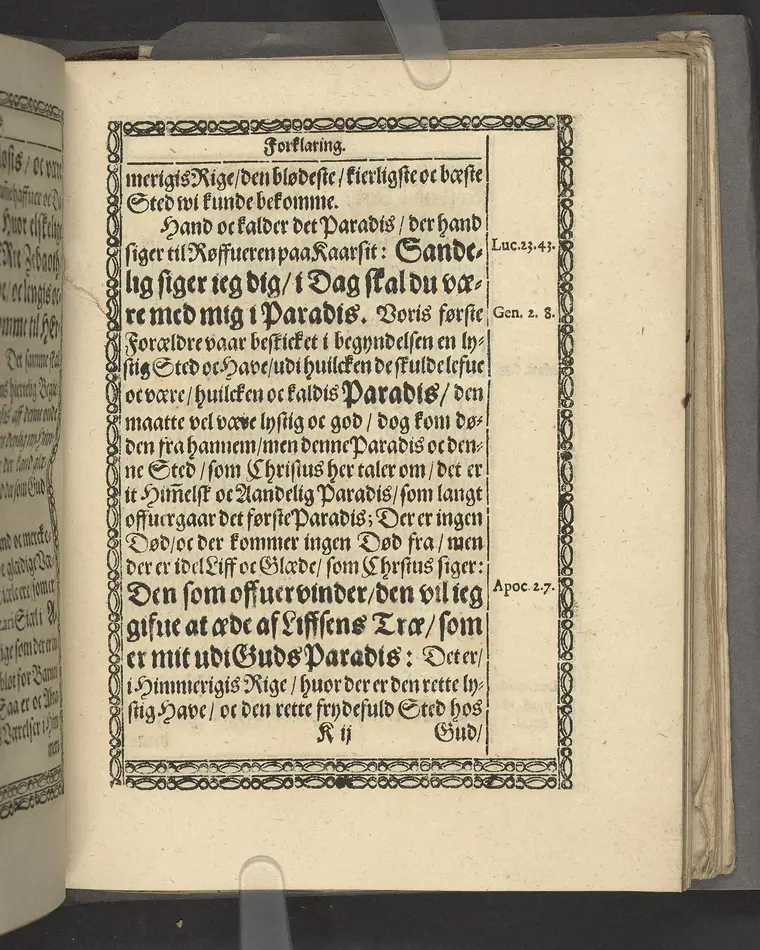 Forklaring.
merigis Rige/ den blødeste/ kierligste oc bæste
Sted wi kunde bekomme.
Hand oc kalder det Paradis/ der hand
siger til Røffueren paa Kaarsit: Sande-
lig siger ieg dig/ i Dag skal du væ-
re med mig i Paradis. Voris første
Forældre vaar beskicket i begyndelsen en ly-
stig Sted oc Have/ udi huilcken de skulde lefue
oc være/ huilcken oc kaldis Paradis/ den
maatte vel være lystig oc god/ dog kom dø-
den fra hannem/ men denne Paradis oc den-
ne Sted/ som Christus her taler om/ det er
it Him̄elsk oc Aandelig Paradis/ som langt
offuergaar det første Paradis; Der er ingen
Død/ oc der kommer ingen Død fra/ men
der er idel Liff oc Glæde/ som Chrstus siger:
Den som offuervinder/ den vil ieg
gifue at æde af Liffsens Træ/ som
er mit udi Guds Paradis: Det er/
i Himmerigis Rige/ huor der er den rette ly-
stig Have/ oc den rette frydefuld Sted hos
K ij Gud/
Luc. 23. 43.
Gen. 2. 8.
Apoc. 2. 7.